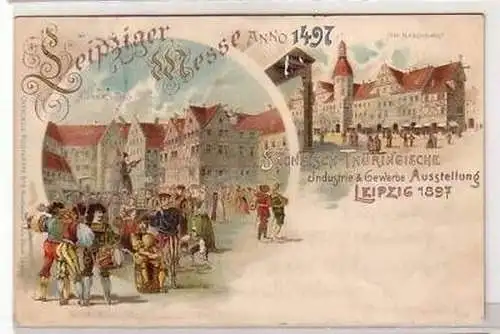 Leipziger
Messe ANNO 1497
SÄCHSISCH-THÜRINGISCHE
Industrie & Gewerbe Ausstellung
LEIPZIG 1897